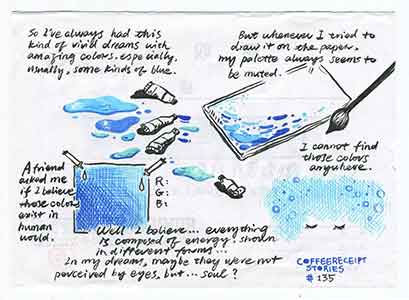 So I've always had this
kind of vivid dreams with
amazing colors. especially,
usually, some kinds of blue.
But whenever I tried to
draw it on the paper,
my palette always seems to
be muted.
I cannot find
those colors
anywhere.
A friend
asked me
if I believe
those colors
exist in
human
world.
R:
G:
B:
Well I believe... everything
is composed of energy, shown
in different forms...
In my dreams, maybe they were not
perceived by eyes, but... soul?
COFFEERECEIPT
STORIES
# 135